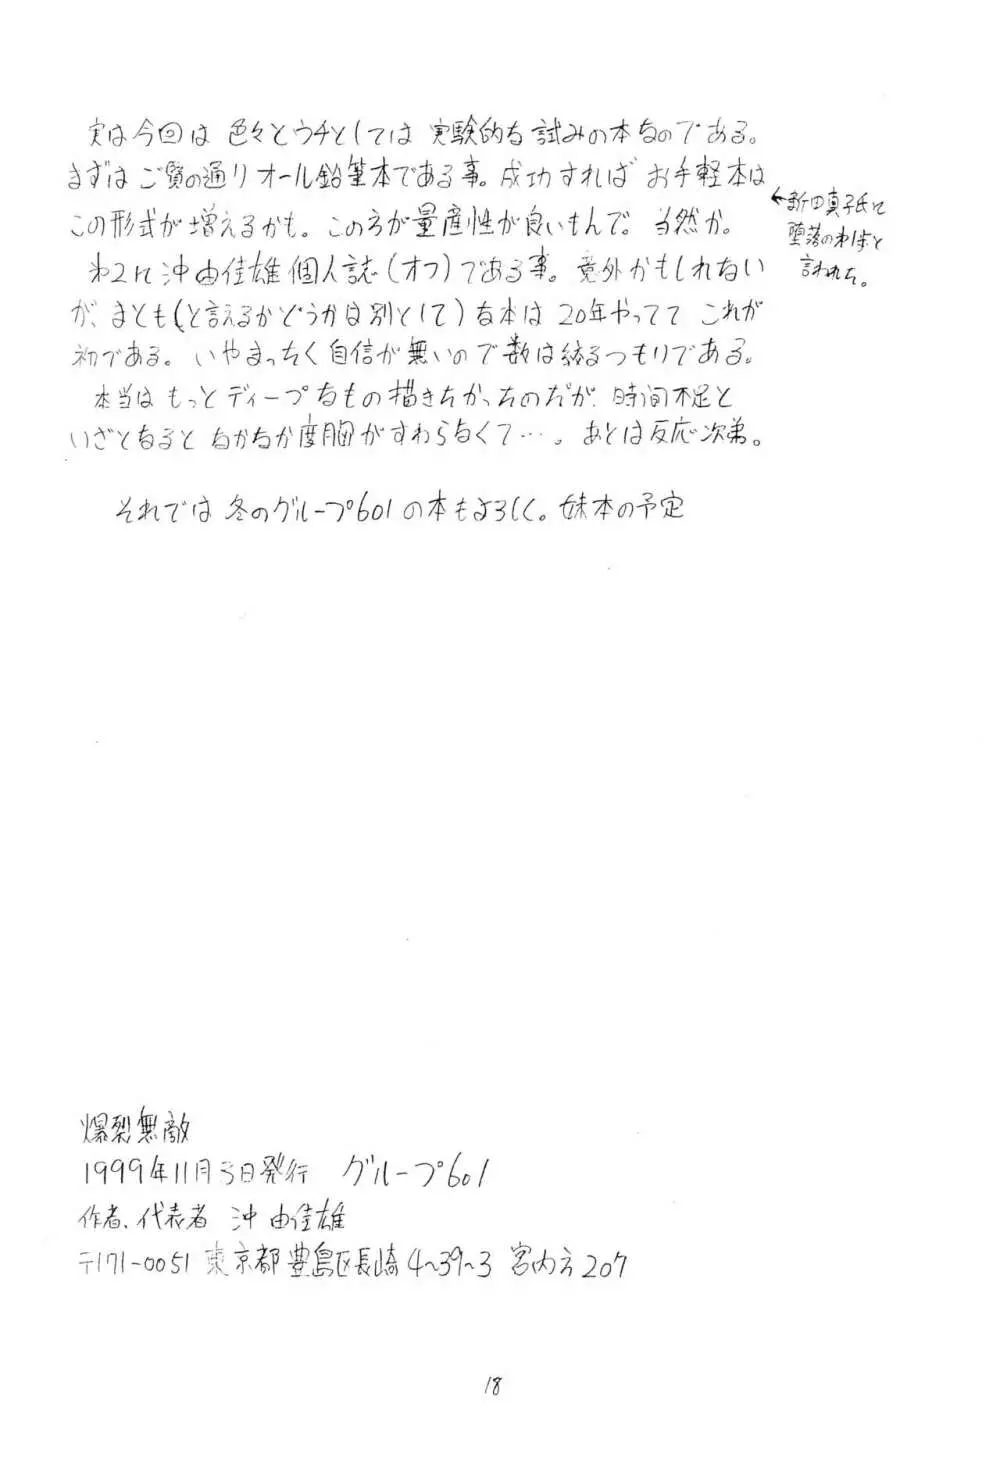 実は今回は色々とウチとしては実験的な試みの本なのである。
まずはご覧の通りオール鉛筆本である事。成功すればお手軽本は
この形式が増えるかも。この方が量産性が良いもんで。当然か。
←新田真子氏に
堕落の第1歩と
言われた。
第2に沖由佳雄個人誌(オフ)である事。意外かもしれない
が、まとも(と言えるかどうかは別として)な本は20年やってて これが
初である。いやまったく自信が無いので数は絞るつもりである。
本当はもっとディープなもの描きたかったのだが、時間不足と
いざとなると なかなか度胸がすわらなくて…。あとは反応次第。
それでは冬のグループ601の本もよろしく。妹本の予定
爆裂無敵
1999年11月3日発行 グループ601
作者、代表者 沖由佳雄
〒171-0051 東京都豊島区長崎4~39~3 宮内方207
18